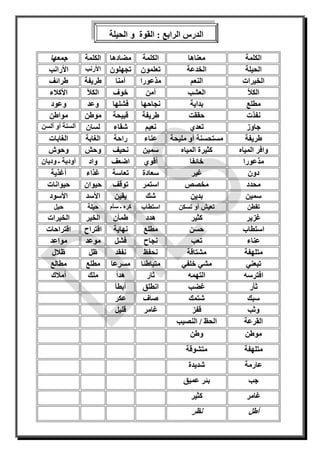 الدرس الرابع : القوة و الحيلة
الكلمة معناها الكلمة مضادها الكلمة جمعها
الحيلة الخدعة تعلمون تجهلون الأرنب الأرانب
الخيرات النعم مذعورا آمنا طريفة طرائف
الكلأ العشب أمن خوف الكلأ الأكلاء
مطلع بداية نجاحها فشلها وعد وعود
نفذت حققت طريفة قبيحة موطن مواطن
جاوز تعدي نعيم شقاء لسان ألسنة أو ألسن
طريفة مستحسنة أو مليحة عناء راحة الغابة الغابات
وافر المياه كثيرة المياه سمين نحيف وحش وحوش
مذعورا خائفا أقوي اضعف واد أودية - وديان
دون غير سعادة تعاسة غذاء أغذية
محدد مخصص استمر توقف حيوان حيوانات
سمين بدين شك يقين الأسد الأسود
تقطن تعيش أو تسكن استطاب كره - سأم حيلة حيل
غزير كثير هدد طمأن الخير الخيرات
استطاب حسن مطلع نهاية اقتراح اقتراحات
عناء تعب نجاح فشل موعد مواعد
متلهفة مشتاقة نحفظ نفقد ظل ظلال
تبعني مشي خلفي متباطئا مسرعا مطلع مطالع
افترسه التهمه ثار هدأ ملك أملاك
ثأر غضب انطلق أبطأ
سبك شتمك صاف عكر
وثب قفز غامر قليل
القرعة الحظ / النصيب
موطن وطن
متلهفة متشوقة
عارمة شديدة
جب بئر عميق
غامر كثير
أطل نظر